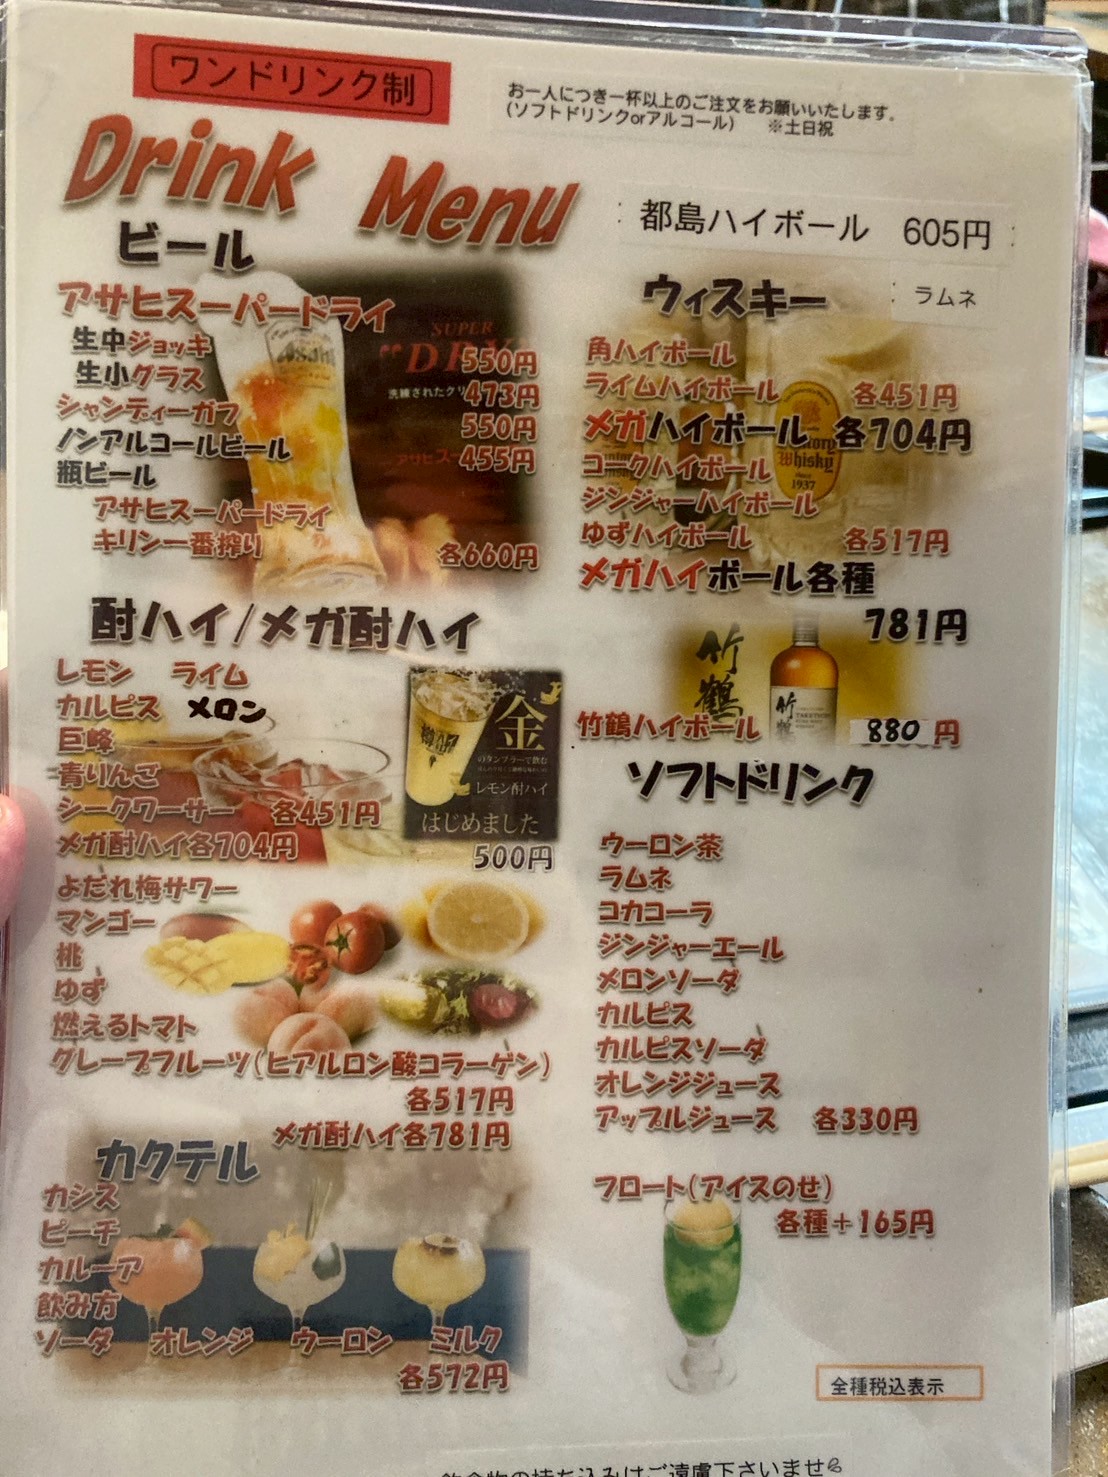 ワンドリンク制
お一人につき一杯以上のご注文をお願いいたします。
(ソフトドリンクorアルコール)　※土日祝
Drink Menu
都島ハイボール 605円
ラムネ
ビール
アサヒスーパードライ
生中ジョッキ 550円
生小グラス 473円
シャンディーガフ 550円
ノンアルコールビール 455円
瓶ビール
アサヒスーパードライ
キリン一番搾り 各660円
SUPER
酎ハイ/メガ酎ハイ
レモン ライム
カルピス メロン
巨峰
青りんご
シークワーサー 各451円
メガ酎ハイ各704円
金
のタンブラーで飲む
レモン酎ハイ
はじめました
500円
よだれ梅サワー
マンゴー
桃
ゆず
燃えるトマト
グレープフルーツ(ヒアルロン酸コラーゲン)
各517円
メガ酎ハイ各781円
カクテル
カシス
ピーチ
カルーア
飲み方
ソーダ オレンジ ウーロン ミルク
各572円
ウィスキー
角ハイボール
ライムハイボール 各451円
メガハイボール 各704円
コークハイボール
ジンジャーハイボール
ゆずハイボール 各517円
メガハイボール各種
781円
Whisky
1937
竹鶴
竹鶴
竹鶴ハイボール 880円
ソフトドリンク
ウーロン茶
ラムネ
コカコーラ
ジンジャーエール
メロンソーダ
カルピス
カルピスソーダ
オレンジジュース
アップルジュース 各330円
フロート(アイスのせ)
各種＋165円
全種税込表示
飲食物の持ち込みはご遠慮下さいませ